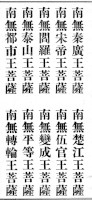 南無秦廣王菩薩
南無楚江王菩薩
南無宋帝王菩薩
南無伍官王菩薩
南無閻羅王菩薩
南無變成王菩薩
南無泰山王菩薩
南無平等王菩薩
南無都市王菩薩
南無轉輪王菩薩